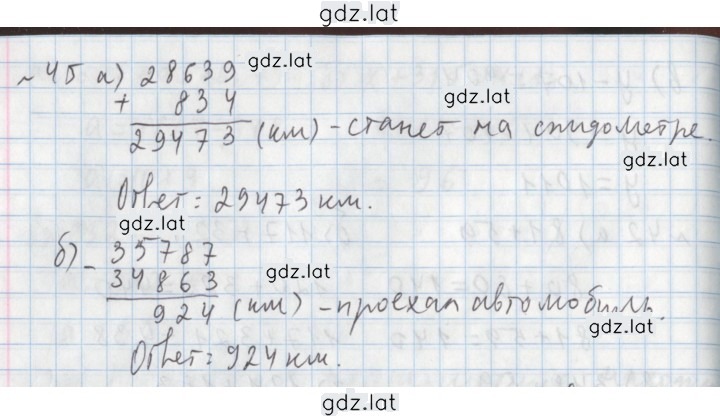 gdz.lat
№45 а) 28639 gdz.lat
+ 834 gdz.lat
29473 (км) - станет на спидометре.
gdz.lat
Ответ: 29473 км.
gdz.lat
б) - 35787
34863 gdz.lat
924 (км) - проехал автомобиль.
gdz.lat
Ответ: 924 км.
gdz.lat